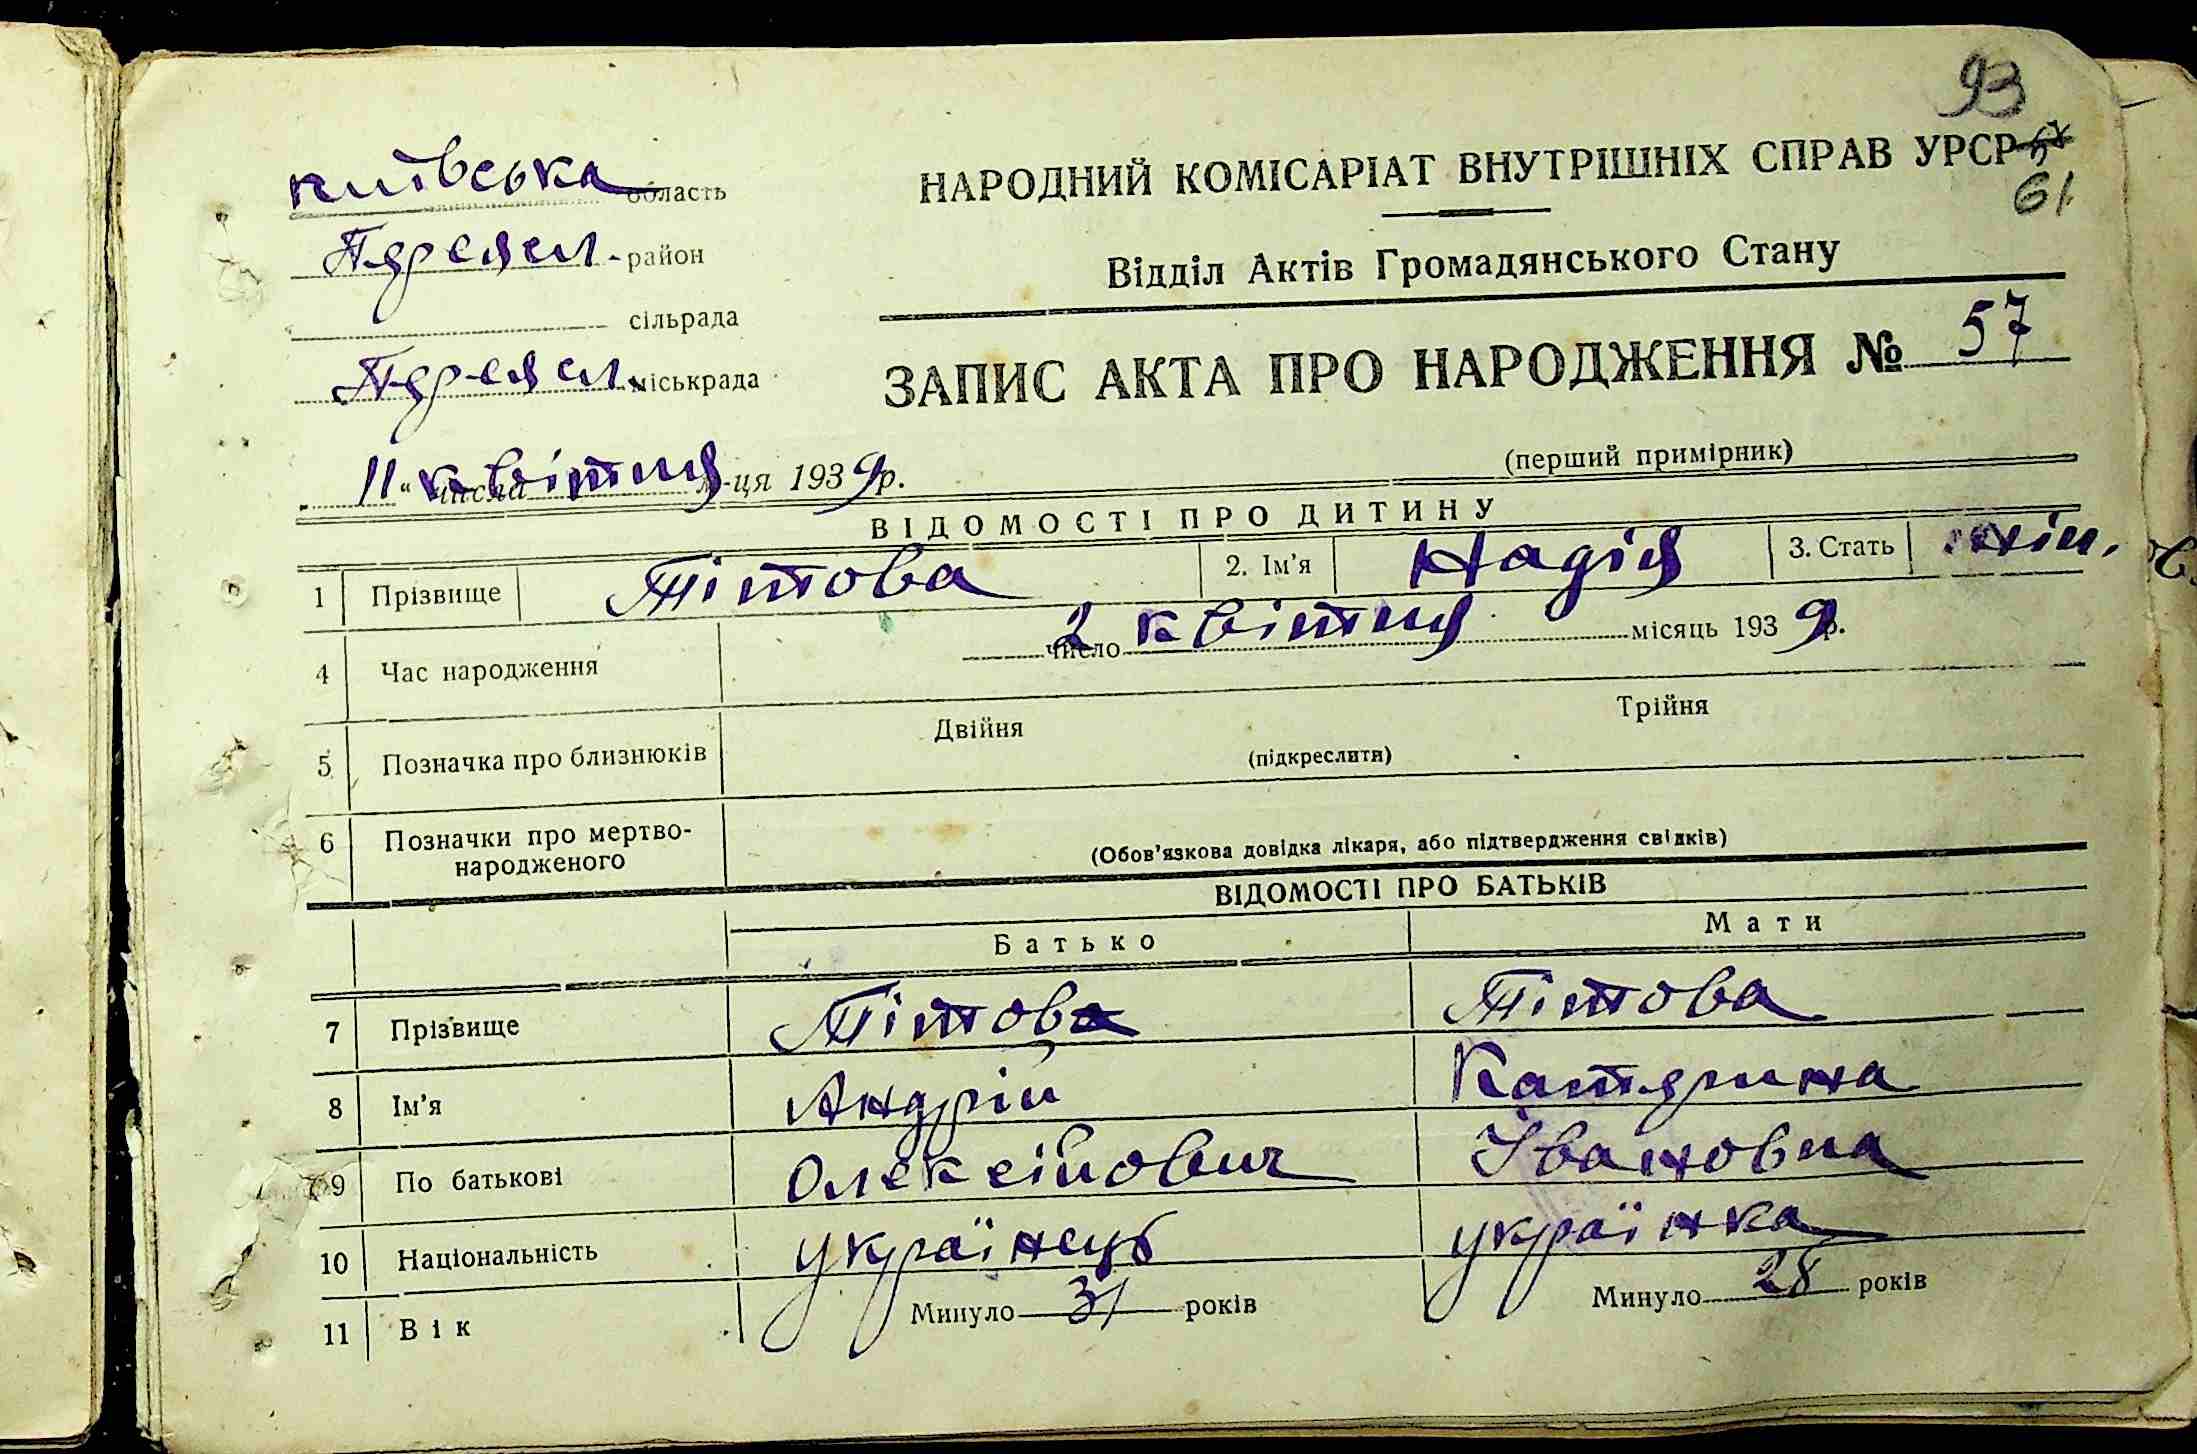 93
київська область
НАРОДНИЙ КОМІСАРІАТ ВНУТРІШНІХ СПРАВ УРСР
61
Переясл. район
Відділ Актів Громадянського Стану
сільрада
Переясл. міськрада
ЗАПИС АКТА ПРО НАРОДЖЕННЯ № 57
(перший примірник)
"11" числа квітня м-ця 1939 р.
ВІДОМОСТІ ПРО ДИТИНУ
1 Прізвище Тітова 2. Ім'я Надія 3. Стать жін.
4 Час народження 2 число квітня місяць 1939 р.
5 Позначка про близнюків Двійня Трійня
(підкреслити)
6 Позначки про мертво-
народженого (Обов'язкова довідка лікаря, або підтвердження свідків)
ВІДОМОСТІ ПРО БАТЬКІВ
Батько Мати
7 Прізвище Тітов Тітова
8 Ім'я Андрій Катерина
9 По батькові Олексійович Івановна
10 Національність українець українка
11 Вік Минуло 31 років Минуло 28 років